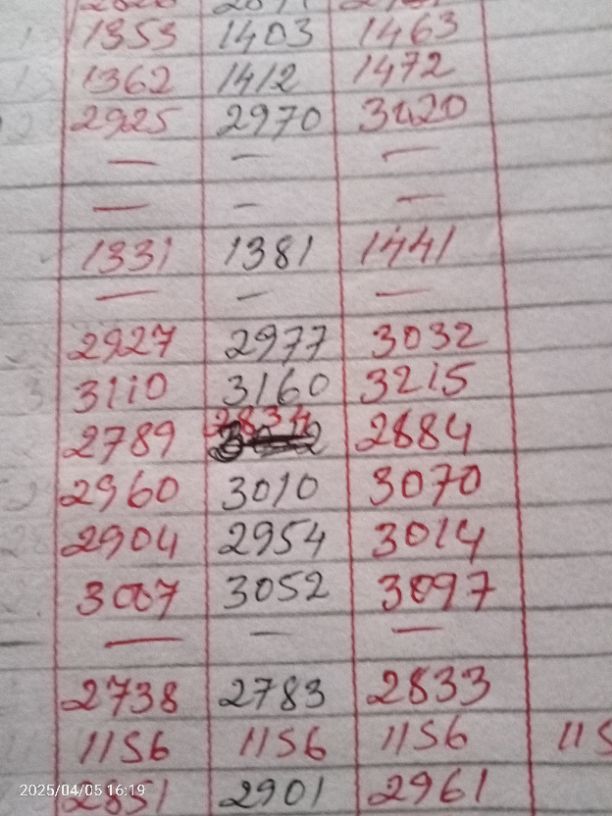 1353 1403 1463
1362 1412 1472
2925 2970 3020
— — —
— — —
1331 1381 1441
— — —
2927 2977 3032
3110 3160 3215
2789 2834 2884
2960 3010 3070
2904 2954 3014
3007 3052 3097
— — —
2738 2783 2833
1156 1156 1156
2851 2901 2961
2025/04/05 16:19